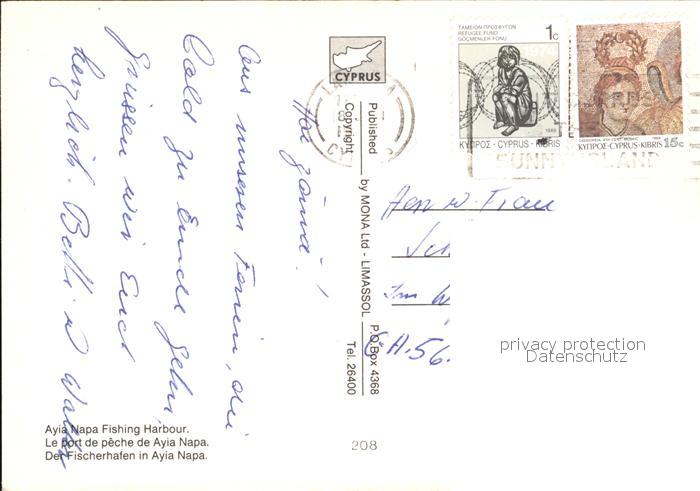 Hoi zäme!
Aus unseren Ferien, die
bald zu Ende gehn,
grüssen wir Euch
herzlich. Bethli u Walter
Ayia Napa Fishing Harbour.
Le port de pêche de Ayia Napa.
Der Fischerhafen in Ayia Napa.
CYPRUS
Published by MONA Ltd - LIMASSOL P.O.Box 4368
Copyright Tel. 26400
208
ΤΑΜΕΙΟΝ ΠΡΟΣΦΥΓΩΝ
REFUGEE FUND
GÖÇMENLER FONU
1c
1974
1988
ΚΥΠΡΟΣ·CYPRUS·KIBRIS
ΚΥΠΡΟΣ·CYPRUS·KIBRIS 15c
Herr u. Frau
Im
CH. 56
privacy protection
Datenschutz